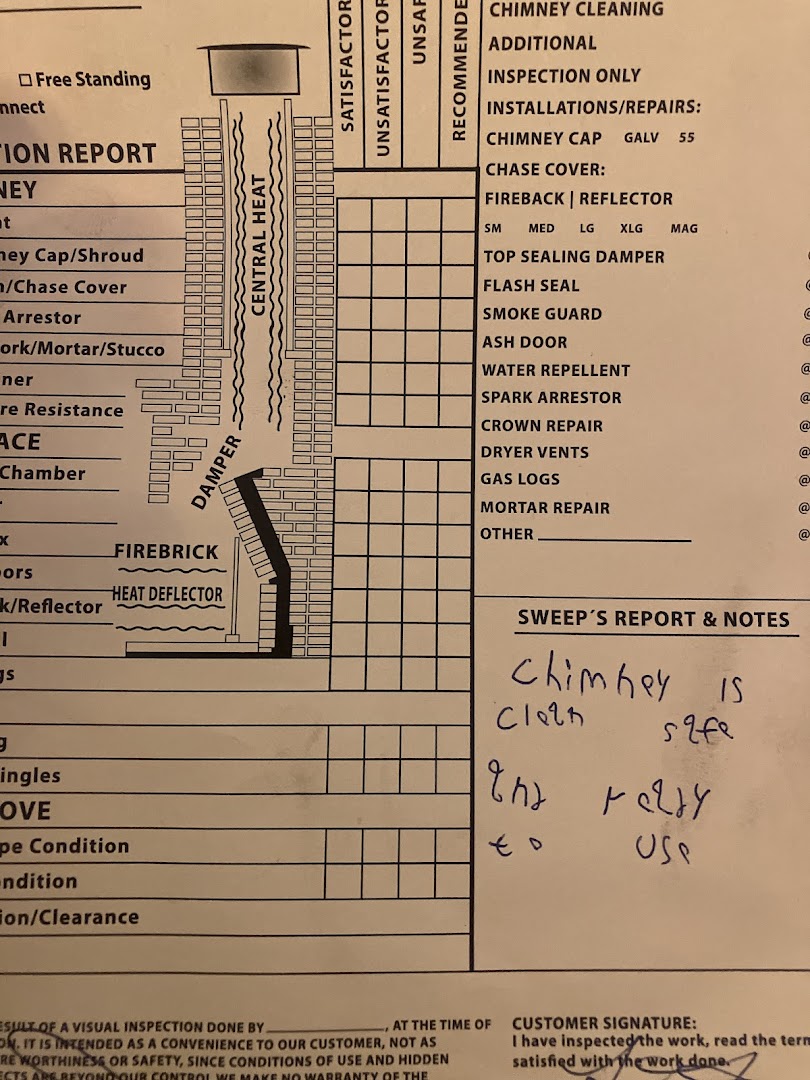 ☐ Free Standing
nnect
ION REPORT
NEY
nt
ney Cap/Shroud
n/Chase Cover
Arrestor
ork/Mortar/Stucco
ner
re Resistance
ACE
Chamber
x
oors
k/Reflector
l
gs
g
ingles
OVE
pe Condition
ondition
ion/Clearance
CENTRAL HEAT
DAMPER
FIREBRICK
HEAT DEFLECTOR
SATISFACTOR
UNSATISFACTOR
UNSAF
RECOMMENDE
CHIMNEY CLEANING
ADDITIONAL
INSPECTION ONLY
INSTALLATIONS/REPAIRS:
CHIMNEY CAP GALV 55
CHASE COVER:
FIREBACK | REFLECTOR
SM MED LG XLG MAG
TOP SEALING DAMPER @
FLASH SEAL @
SMOKE GUARD @
ASH DOOR @
WATER REPELLENT @
SPARK ARRESTOR @
CROWN REPAIR @
DRYER VENTS @
GAS LOGS @
MORTAR REPAIR @
OTHER @
SWEEP´S REPORT & NOTES
Chimney is
clean safe
and ready
to use
ESULT OF A VISUAL INSPECTION DONE BY , AT THE TIME OF
ON. IT IS INTENDED AS A CONVENIENCE TO OUR CUSTOMER, NOT AS
RE WORTHINESS OR SAFETY, SINCE CONDITIONS OF USE AND HIDDEN
ECTS ARE BEYOND OUR CONTROL WE MAKE NO WARRANTY OF THE
CUSTOMER SIGNATURE:
I have inspected the work, read the term
satisfied with the work done.